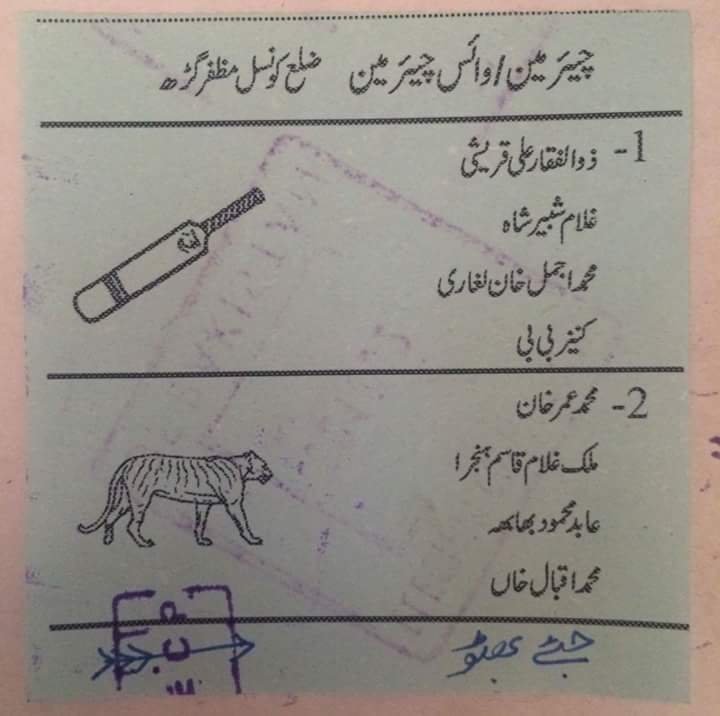 چیئرمین / وائس چیئرمین ضلع کونسل مظفرگڑھ
1- ذوالفقار علی قریشی
غلام شبیر شاہ
محمد اجمل خان لغاری
کنیز بی بی
2- محمد عمر خان
ملک غلام قاسم ہنجرا
عابد محمود بھابھہ
محمد اقبال خاں
جئے بھٹو